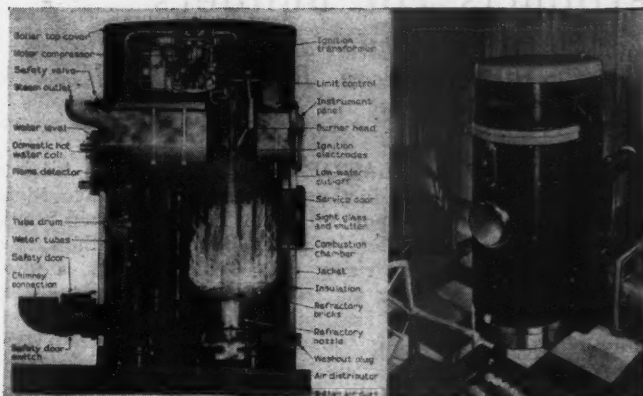 Boiler top cover
Motor compressor
Safety valve
Steam outlet
Water level
Domestic hot
water coil
Flame detector
Tube drum
Water tubes
Safety door
Chimney
connection
Safety door
switch
Ignition
transformer
Limit control
Instrument
panel
Burner head
Ignition
electrodes
Low-water
cut-off
Service door
Sight glass
and shutter
Combustion
chamber
Jacket
Insulation
Refractory
bricks
Refractory
nozzle
Washout plug
Air distributor